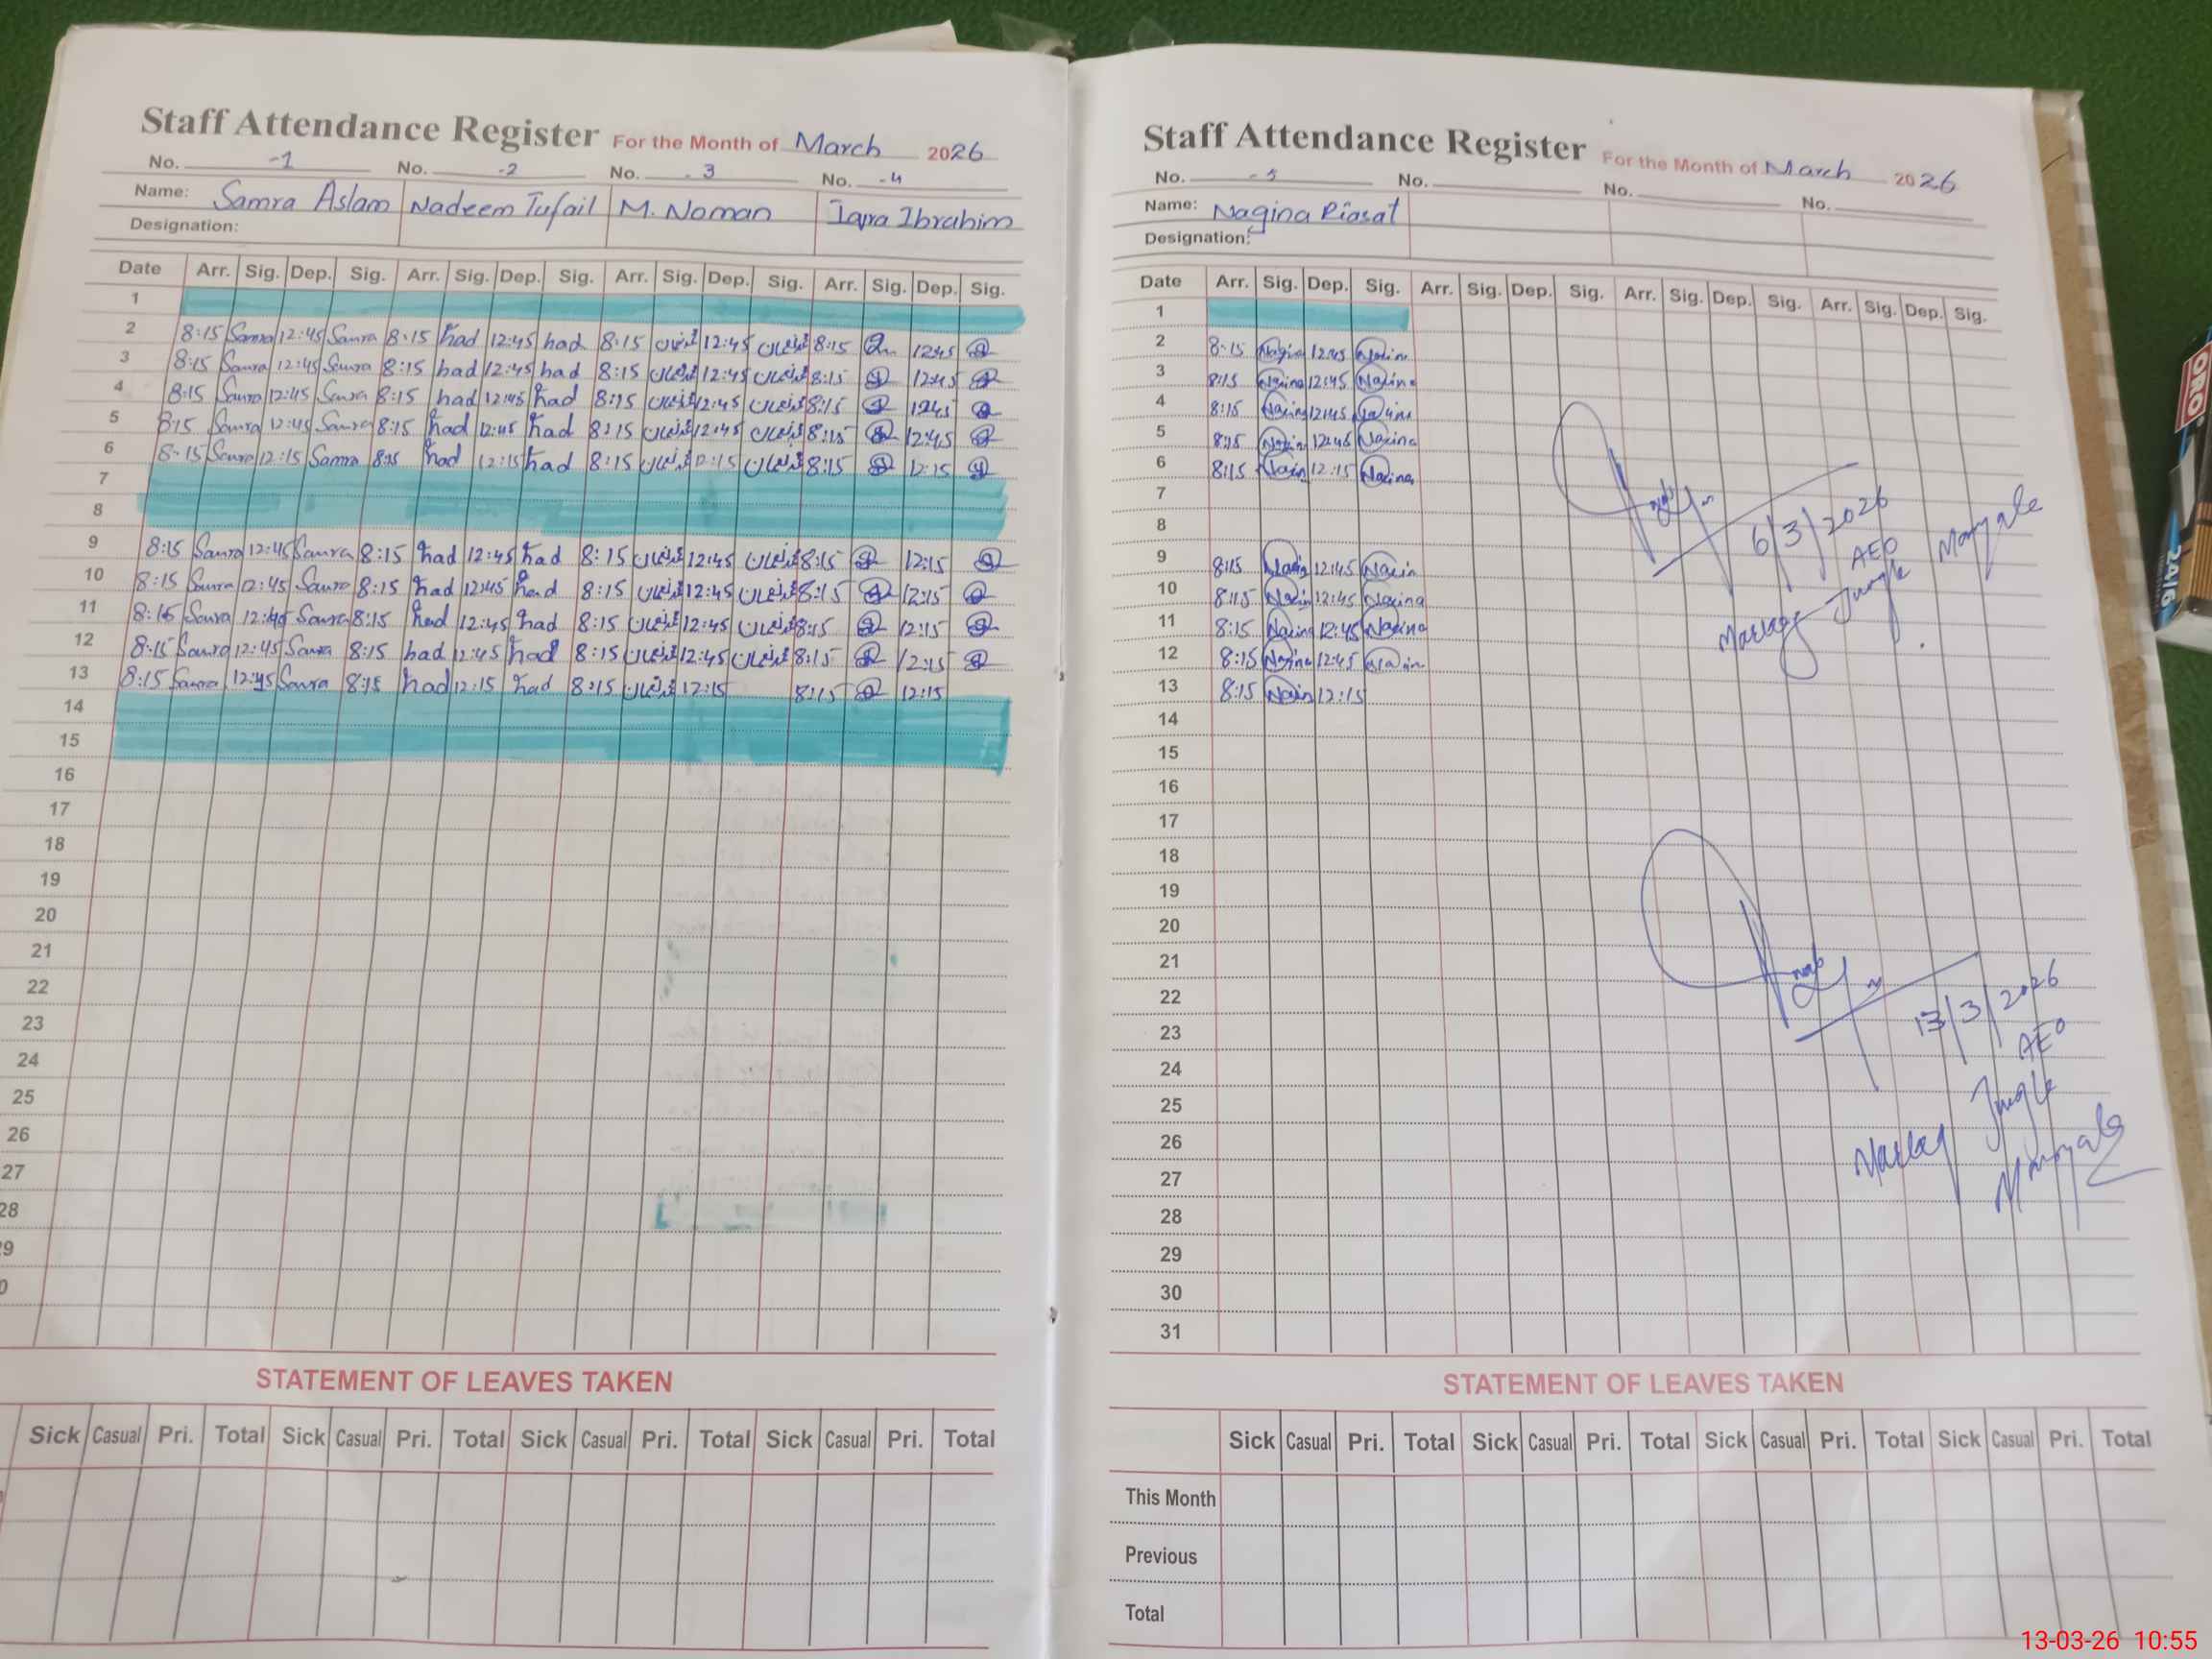 Staff Attendance Register For the Month of March 2026
No. -1 No. -2 No. -3 No. -4
Name: Samra Aslam Nadeem Tufail M. Noman Iqra Ibrahim
Designation:
Date Arr. Sig. Dep. Sig. Arr. Sig. Dep. Sig. Arr. Sig. Dep. Sig. Arr. Sig. Dep. Sig.
1
2 8:15 Samra 12:45 Samra 8:15 had 12:45 had 8:15 12:45 8:15 12:45
3 8:15 Samra 12:45 Samra 8:15 had 12:45 had 8:15 12:45 8:15 12:45
4 8:15 Samra 12:45 Samra 8:15 had 12:45 had 8:15 12:45 8:15 12:45
5 8:15 Samra 12:45 Samra 8:15 had 12:45 had 8:15 12:45 8:15 12:45
6 8:15 Samra 12:15 Samra 8:15 had 12:15 had 8:15 12:15 8:15 12:15
7
8
9 8:15 Samra 12:45 Samra 8:15 had 12:45 had 8:15 12:45 8:15 12:15
10 8:15 Samra 12:45 Samra 8:15 had 12:45 had 8:15 12:45 8:15 12:15
11 8:15 Samra 12:45 Samra 8:15 had 12:45 had 8:15 12:45 8:15 12:15
12 8:15 Samra 12:45 Samra 8:15 had 12:45 had 8:15 12:45 8:15 12:15
13 8:15 Samra Samra 8:15 had 12:15 had 8:15 12:15 8:15 12:15
14
15
16
17
18
19
20
21
22
23
24
25
26
27
28
29
0
STATEMENT OF LEAVES TAKEN
Sick Casual Pri. Total Sick Casual Pri. Total Sick Casual Pri. Total Sick Casual Pri. Total
Staff Attendance Register For the Month of March 2026
No. -5 No. No. No.
Name: Nagina Riasat
Designation:
Date Arr. Sig. Dep. Sig. Arr. Sig. Dep. Sig. Arr. Sig. Dep. Sig. Arr. Sig. Dep. Sig.
1
2 8:15 Nagina 12:45 Nagina
3 8:15 Nagina 12:45 Nagina
4 8:15 Nagina 12:45 Nagina
5 8:15 Nagina 12:45 Nagina
6 8:15 Nagina 12:15 Nagina
7
8
9 8:15 Nagina 12:45 Nagina
10 8:15 Nagina 12:45 Nagina
11 8:15 Nagina 12:45 Nagina
12 8:15 Nagina 12:45 Nagina
13 8:15 Nagina 12:15
14
15
16
17
18
19
20
21
22
23
24
25
26
27
28
29
30
31
6/3/2026
AEO
Markaz Jungle
13/3/2026
AEO
Markaz Jungle
STATEMENT OF LEAVES TAKEN
Sick Casual Pri. Total Sick Casual Pri. Total Sick Casual Pri. Total Sick Casual Pri. Total
This Month
Previous
Total
ORO
24/6
13-03-26 10:55